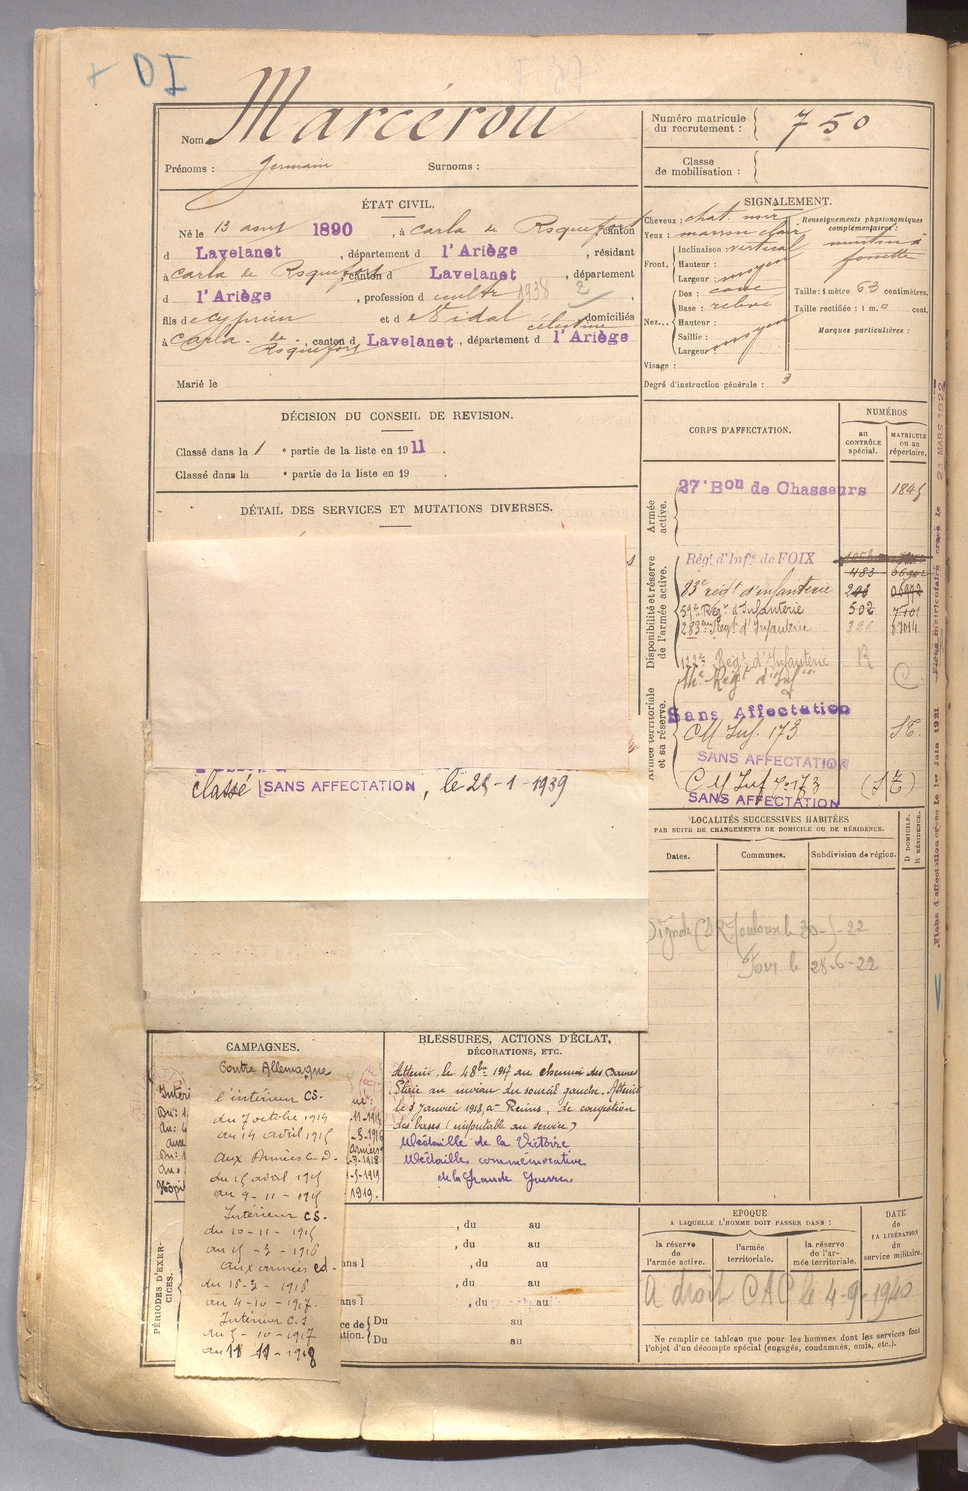 + DI
Nom Marcérou
Prénoms : Germain Surnoms :
Numéro matricule du recrutement : 750
Classe de mobilisation :
ÉTAT CIVIL.
Né le 13 aout 1890, à Carla de Roquefort canton
d Lavelanet, département d l'Ariège, résidant
à Carla de Roquefort canton d Lavelanet, département
d l'Ariège, profession d cultr 1938 2
fils de Cyprien et d Vidal Célestine domiciliés
à Carla de Roquefort, canton d Lavelanet, département d l'Ariège
Marié le
SIGNALEMENT.
Cheveux : chat. noir
Yeux : marron clair
Front. Inclinaison : vertical
Hauteur :
Largeur : moyen
Nez... Dos : cave
Base : relevé
Hauteur :
Saillie : moyen
Largeur :
Visage :
Degré d'instruction générale : 3
Renseignements physionomiques complémentaires :
menton à fossette
Taille : 1 mètre 63 centimètres.
Taille rectifiée : 1 m. cent.
Marques particulières :
DÉCISION DU CONSEIL DE REVISION.
Classé dans la 1 e partie de la liste en 1911.
Classé dans la e partie de la liste en 19 .
DÉTAIL DES SERVICES ET MUTATIONS DIVERSES.
classé SANS AFFECTATION, le 25-1-1939
CORPS D'AFFECTATION.
NUMÉROS
au CONTRÔLE spécial.
MATRICULE ou au répertoire.
Armée active.
27e Bon de Chasseurs 1845
Disponibilité et réserve de l'armée active.
Régt d'Infie de FOIX
483
83e régt d'infanterie
59me Régt d'Infanterie 502 7101
283me Régt d'Infanterie
122me Régt d'Infanterie R
Armée territoriale et sa réserve.
Régt d'Infie
Sans Affectation
CM Inf. 173
SANS AFFECTATION
CM Inf no 173
SANS AFFECTATION
Fiche d'affectation créée le 1er Juin 1921 Fiche matriculaire créée le 21 MARS 1922
LOCALITÉS SUCCESSIVES HABITÉES
PAR SUITE DE CHANGEMENTS DE DOMICILE OU DE RÉSIDENCE.
Dates. Communes. Subdivision de région. D DOMICILE. R RÉSIDENCE.
Toulouse le 30-5-22
le 28-6-22
CAMPAGNES.
Contre Allemagne
l'intérieur CS.
du 7 octobre 1914
au 14 avril 1915
aux Armées C.D.
du 15 avril 1915
au 9-11-1915
Intérieur CS.
du 10-11-1915
au 15-3-1916
aux armées CD.
du 16-3-1916
au 4-10-1917.
Intérieur C.S
du 5-10-1917
au 11 11-1918
BLESSURES, ACTIONS D'ÉCLAT, DÉCORATIONS, ETC.
Atteint, le 4 8bre 1917 au chemin des Dames
Plaie au niveau du sourcil gauche. Atteint
le 5 Janvier 1918, à Reims, de congestion
des bases (imputable au service)
Médaille de la Victoire
Médaille commémorative
de la Grande Guerre
PÉRIODES D'EXERCICES.
, du au
, du au
ans l , du au
, du au
ans l , du au
Du au
Du au
EPOQUE
A LAQUELLE L'HOMME DOIT PASSER DANS :
la réserve de l'armée active.
l'armée territoriale.
la réserve de l'armée territoriale.
DATE de LA LIBÉRATION du service militaire.
A droit CAC le 4-9-1940
Ne remplir ce tableau que pour les hommes dont les services font
l'objet d'un décompte spécial (engagés, condamnés, omis, etc.).